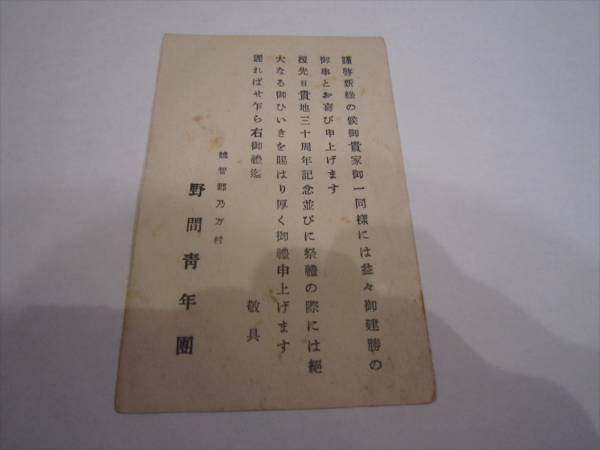 謹啓新緑の候御貴家御一同樣には益々御建勝の
御事とお喜び申上げます
扨先日貴地三十周年記念並びに祭禮の際には絕
大なる御ひいきを賜はり厚く御禮申上げます
遲ればせ乍ら右御禮迄
敬具
越智郡乃万村
野間靑年團